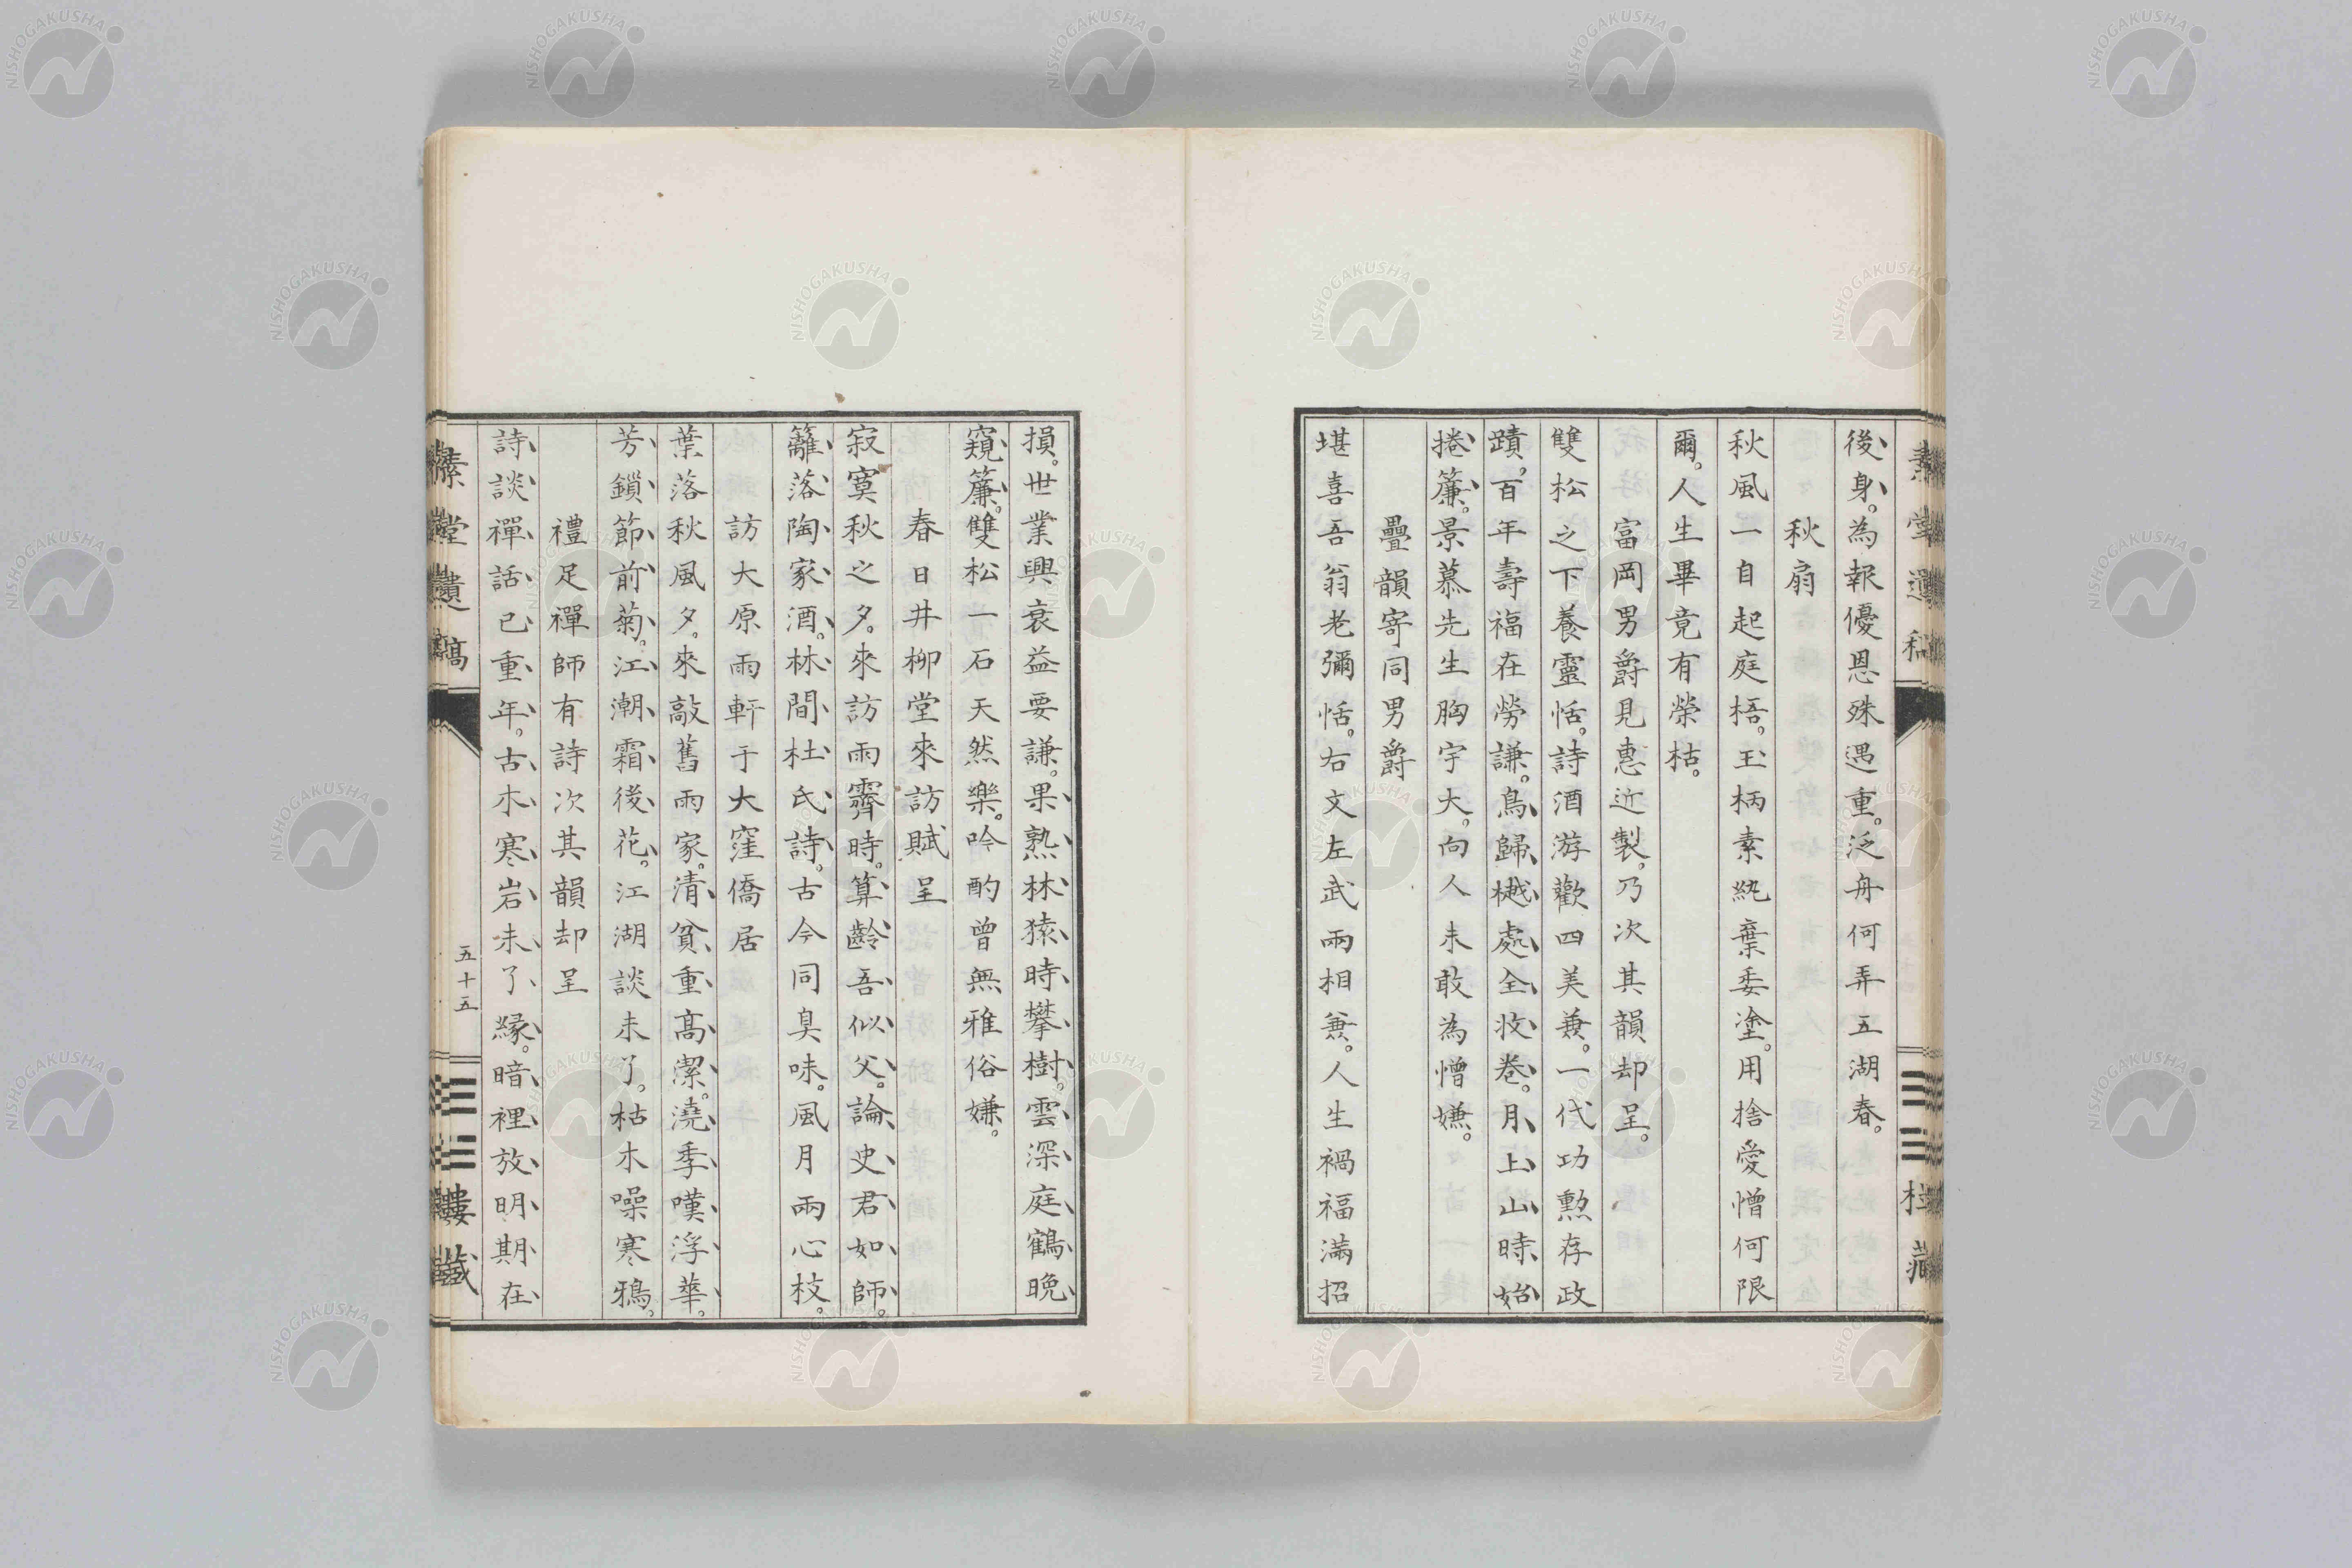 後身。為報優恩殊遇重。泛舟何弄五湖春。
秋扇
秋風一自起庭梧。玉柄素紈棄委塗。用捨愛憎何限
爾。人生畢竟有榮枯。
富岡男爵見惠近製。乃次其韻却呈。
雙松之下養靈恬。詩酒游歡四美兼。一代功勲存政
蹟。百年壽福在勞謙。鳥歸樾處全收卷。月上山時始
捲簾。景慕先生胸宇大。向人未敢為憎嫌。
疊韻寄同男爵
堪喜吾翁老彌恬。右文左武兩相兼。人生禍福滿招
損。世業興衰益要謙。果熟林猿時攀樹。雲深庭鶴晩
窺簾。雙松一石天然樂。吟酌曾無雅俗嫌。
春日井柳堂來訪賦呈
寂寞秋之夕。來訪雨霽時。算齡吾似父。論史君如師。
籬落陶家酒。林間杜氏詩。古今同臭味。風月兩心枝。
訪大原雨軒于大窪僑居
葉落秋風夕。來敲舊雨家。清貧重高潔。澆季嘆浮華。
芳鎖節前菊。江潮霜後花。江湖談未了。枯木噪寒鴉。
禮足禪師有詩次其韻却呈
詩談禪話已重年。古木寒岩未了緣。暗裡放明期在
五十五
NISHOGAKUSHA